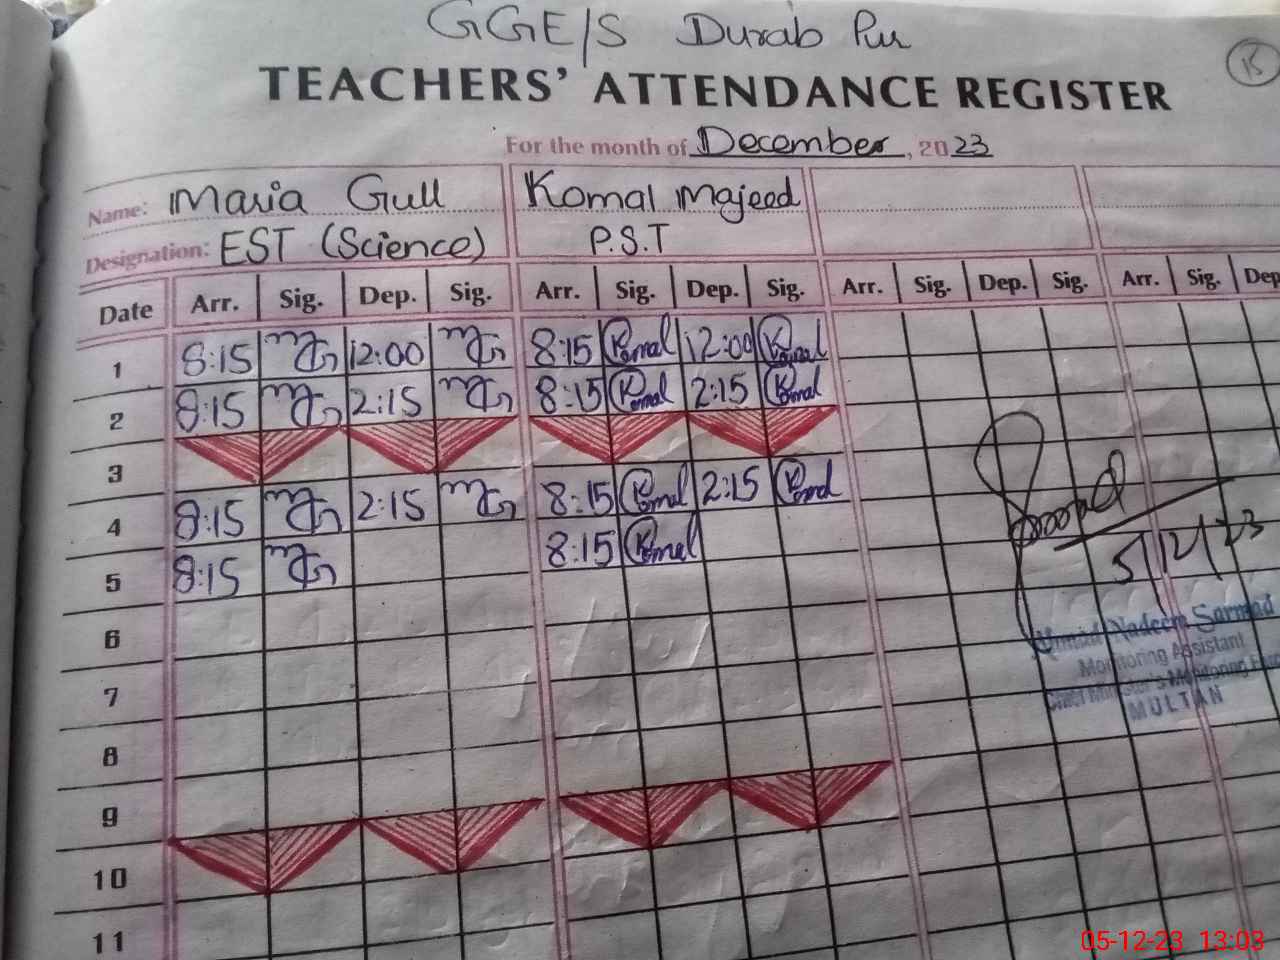 GGE/S Durab Pur
15
TEACHERS' ATTENDANCE REGISTER
For the month of December, 2023
Name: Maria Gull Komal Majeed
Designation: EST (Science) P.S.T
Date Arr. Sig. Dep. Sig. Arr. Sig. Dep. Sig. Arr. Sig. Dep. Sig. Arr. Sig. Dep
1 8:15 MG 12:00 MG 8:15 Komal 12:00 Komal
2 8:15 MG 2:15 MG 8:15 Komal 2:15 Komal
3
4 8:15 MG 2:15 MG 8:15 Komal 2:15 Komal
5 8:15 MG 8:15 Komal
6
7
8
9
10
11
5/12/23
Ahmad Nadeem Sarmad
Monitoring Assistant
Chief Minister's Monitoring
MULTAN
05-12-23 13:03